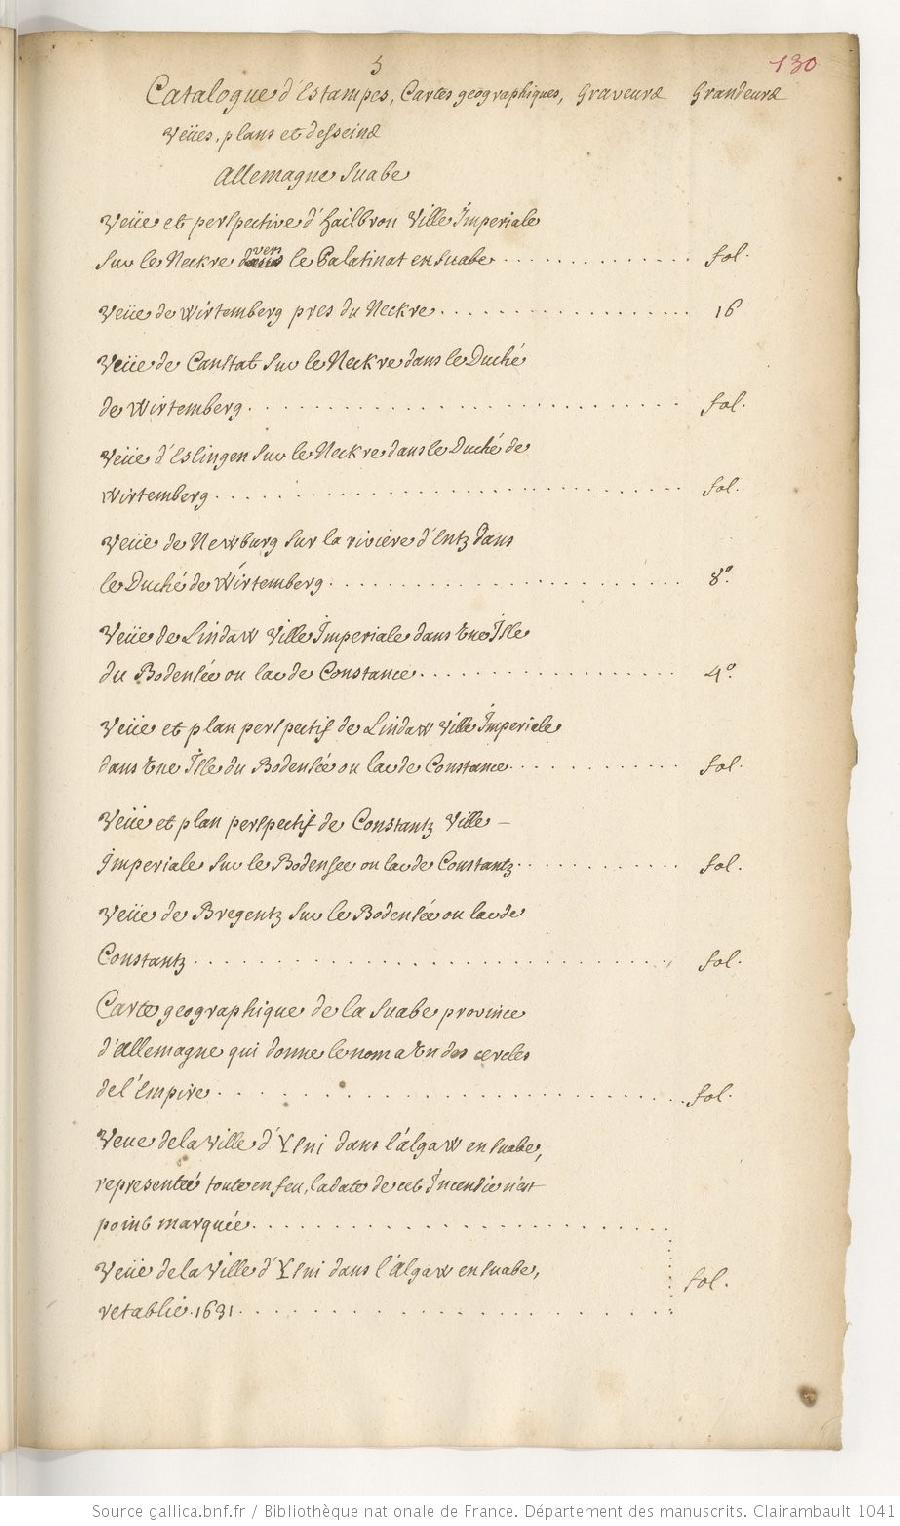 5
130
Catalogue d'Estampes, Cartes geographiques, Graveurs Grandeurs
Veües, plans et desseins
Allemagne Suabe
Veüe et perspective d'Hailbron Ville Imperiale
Sur le Neckre dans vers le Palatinat en Suabe . . . . . . . . . . . . fol.
Veüe de Wirtemberg pres du Neckre . . . . . . . . . . . . . . . . . 16
Veüe de Canstat Sur le Neckre dans le Duché
de Wirtemberg . . . . . . . . . . . . . . . . . . . . . . . . . . . . fol.
Veüe d'Eslingen Sur le Neckre dans le Duché de
Wirtemberg . . . . . . . . . . . . . . . . . . . . . . . . . . . . . . fol.
Veüe de Newburg Sur la riviere d'Entz dans
le Duché de Wirtemberg . . . . . . . . . . . . . . . . . . . . . . . 8º.
Veüe de Lindaw Ville Imperiale dans Une Isle
du Bodensée ou lac de Constance . . . . . . . . . . . . . . . . . 4º.
Veüe et plan perspectif de Lindaw Ville Imperiale
dans Une Isle du Bodensée ou lac de Constance . . . . . . . . . . fol.
Veüe et plan perspectif de Constantz Ville –
Imperiale Sur le Bodensee ou lac de Constantz . . . . . . . . . . fol.
Veüe de Bregentz Sur le Bodensée ou lac de
Constantz . . . . . . . . . . . . . . . . . . . . . . . . . . . . . . fol.
Carte geographique de la Suabe province
d'Allemagne qui donne le nom a Un des cercles
de l'Empire . . . . . . . . . . . . . . . . . . . . . . . . . . . . . fol.
Veue de la Ville d'Ysni dans l'algaw en Suabe,
representée toute en feu, la date de cet Incendie n'est
point marquée . . . . . . . . . . . . . . . . . . . . . . . . . .
Veüe de la Ville d'Ysni dans l'Algaw en Suabe, fol.
retablie. 1631 . . . . . . . . . . . . . . . . . . . . . . . . . .
Source gallica.bnf.fr / Bibliothèque nationale de France. Département des manuscrits. Clairambault 1041